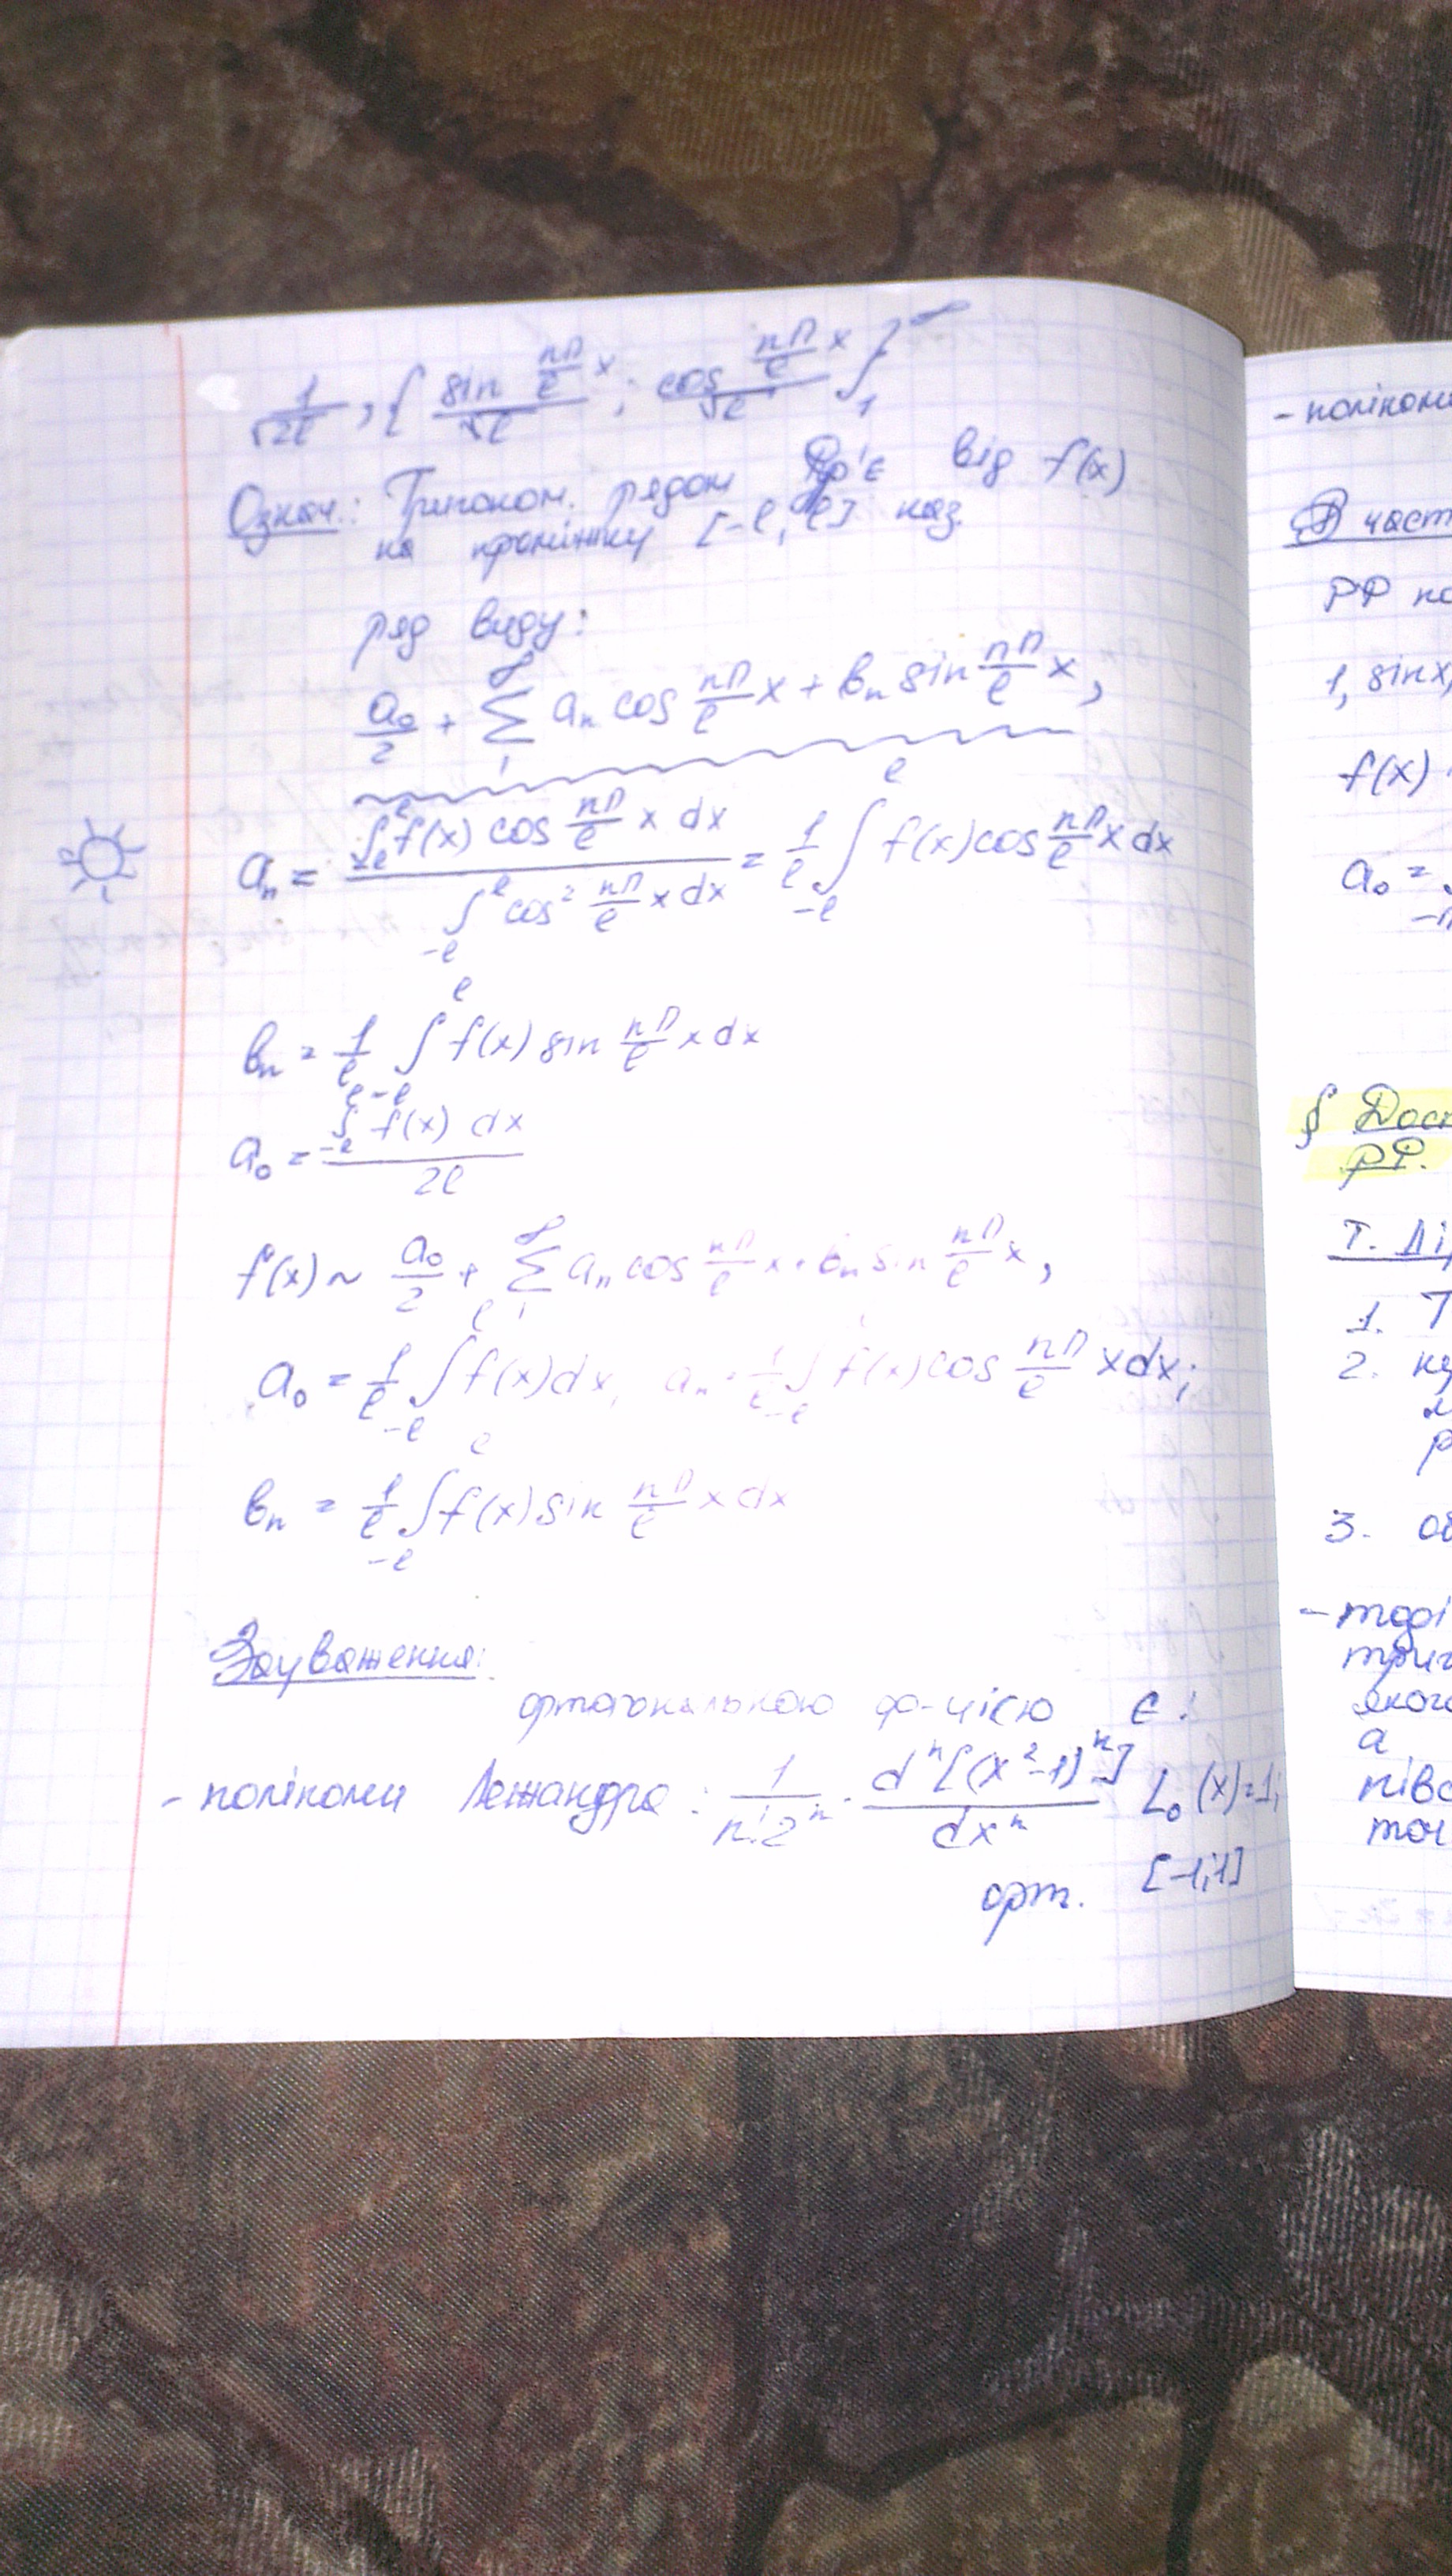 1/√2l, { sin nπ/l x / √l ; cos nπ/l x / √l }₁^∞
Означ.: Тригоном. рядом Фур'є від f(x)
на проміжку [-l, l] наз.
ряд виду:
a₀/2 + ∑₁^∞ aₙ cos nπ/l x + bₙ sin nπ/l x,
aₙ = ∫₋ₗ^l f(x) cos nπ/l x dx / ∫₋ₗ^l cos² nπ/l x dx = 1/l ∫₋ₗ^l f(x) cos nπ/l x dx
bₙ = 1/l ∫₋ₗ^l f(x) sin nπ/l x dx
a₀ = ∫₋ₗ^l f(x) dx / 2l
f(x) ~ a₀/2 + ∑₁^∞ aₙ cos nπ/l x + bₙ sin nπ/l x,
a₀ = 1/l ∫₋ₗ^l f(x) dx, aₙ = 1/l ∫₋ₗ^l f(x) cos nπ/l x dx;
bₙ = 1/l ∫₋ₗ^l f(x) sin nπ/l x dx
Зауваження:
ортогональною ф-цією є:
- поліноми Лежандра: 1/n!2ⁿ · dⁿ[(x²-1)ⁿ]/dxⁿ L₀(x)=1;
орт. [-1;1]
РФ
1, sinx,
f(x)
a₀ =
-π
§
РФ.
Т.
1. Т
2.
3.
а